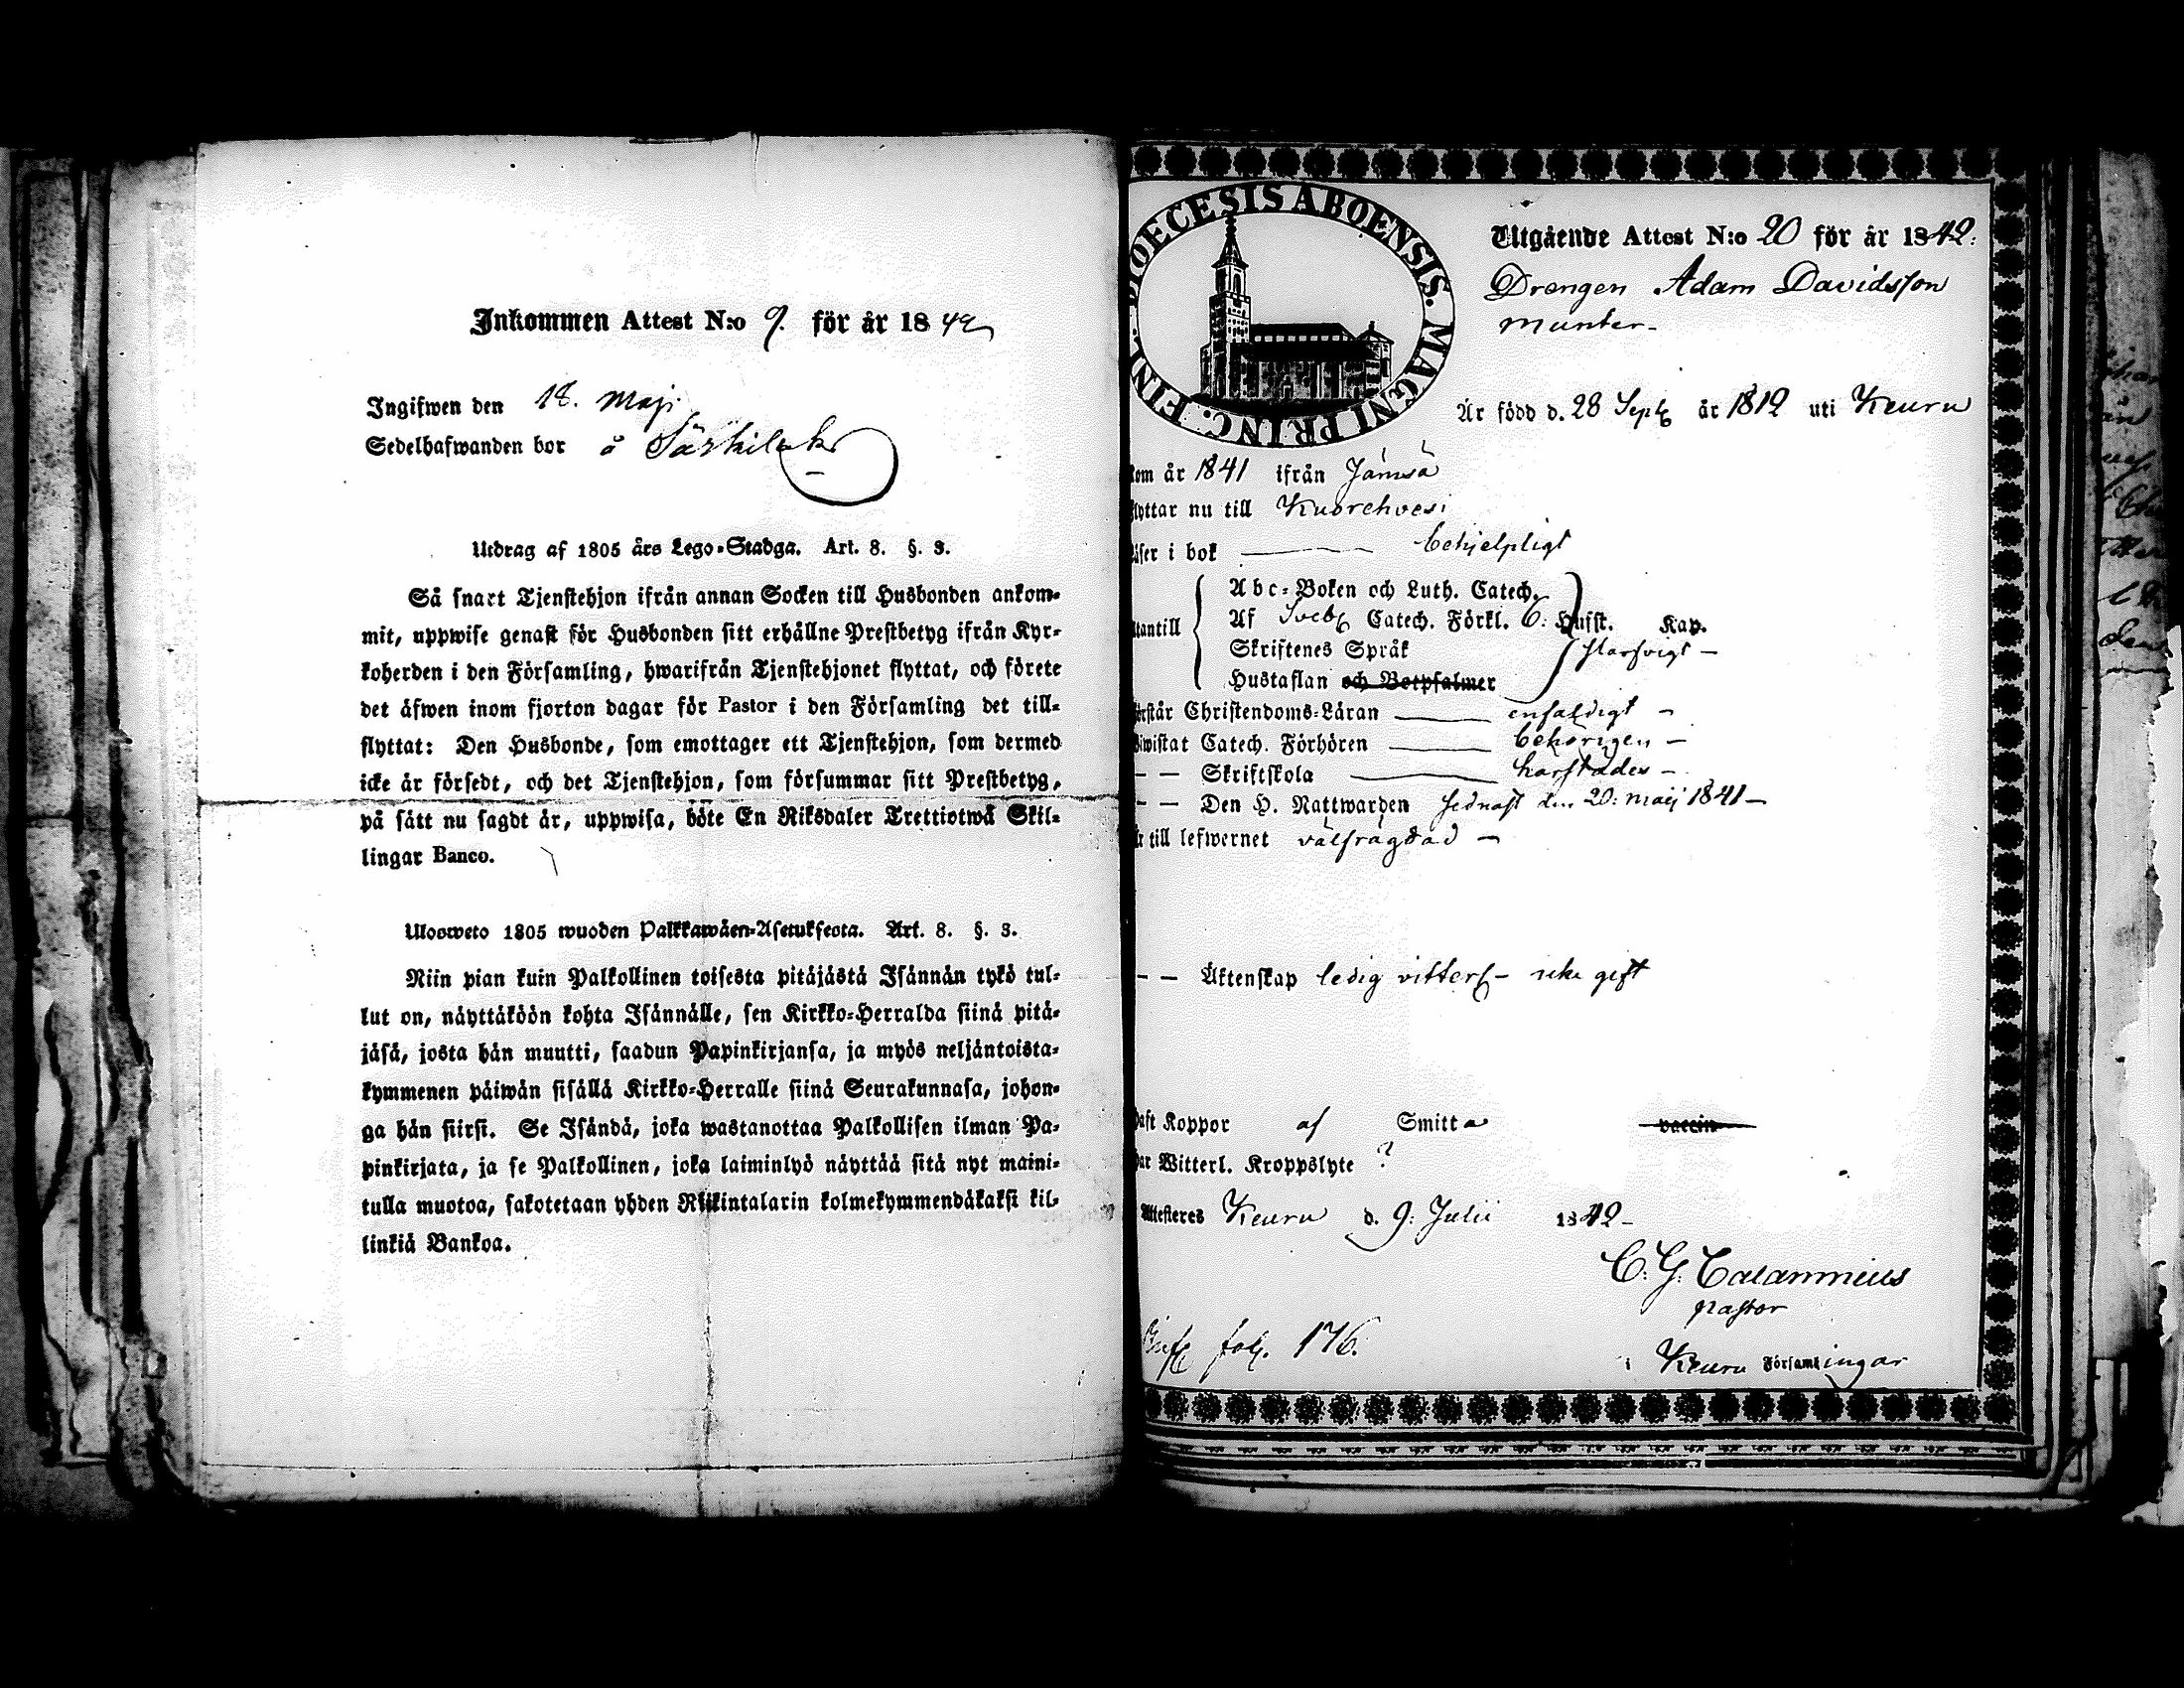 Inkommen Attest N:o 9. för år 1842
Ingifwen den 18. Maji
Sedelhafwanden bor å Särkilaks
Utdrag af 1805 års Lego-Stadga. Art. 8. §. 3.
Så snart Tjenstehjon ifrån annan Socken till Husbonden ankom-
mit, uppwise genast för Husbonden sitt erhållne Prestbetyg ifrån Kyr-
koherden i den Församling, hwarifrån Tjenstehjonet flyttat, och förete
det äfwen inom fjorton dagar för Pastor i den Församling det till-
flyttat: Den Husbonde, som emottager ett Tjenstehjon, som dermed
icke är försedt, och det Tjenstehjon, som försummar sitt Prestbetyg,
på sätt nu sagdt är, uppwisa, böte En Riksdaler Trettiotwå Skil-
lingar Banco.
Ulosweto 1805 wuoden Palkkawäen-Asetuksesta. Art. 8. §. 3.
Niin pian kuin Palkollinen toisesta pitäjästä Isännän tykö tul-
lut on, näyttäköön kohta Isännälle, sen Kirkko-Herralda siinä pitä-
jäsä, josta hän muutti, saadun Papinkirjansa, ja myös neljäntoista-
kymmenen päiwän sisällä Kirkko-Herralle siinä Seurakunnasa, johon-
ga hän siirsi. Se Isändä, joka wastanottaa Palkollisen ilman Pa-
pinkirjata, ja se Palkollinen, joka laiminlyö näyttää sitä nyt maini-
tulla muotoa, sakotetaan yhden Riikintalarin kolmekymmendäkaksi kil-
linkiä Bankoa.
DIOECESIS ABOENSIS. MAGNI PRINC. FINL.
Utgående Attest N:o 20 för år 1842:
Drengen Adam Davidsson
Munter-
Är född d. 28 Sept år 1812 uti Keuru
kom år 1841 ifrån Jämsä
flyttar nu till Kuorehvesi
läser i bok behjelpligt
Abc-Boken och Luth. Catech.
utantill Af Sveb Catech. Förkl. 6: Hufst. Kap.
Skriftenes Språk slarfvigt -
Hustaflan och Botpsalmer
förstår Christendoms-Läran enfaldigt -
biwistat Catech. Förhören behörigen -
- - Skriftskola harstädes -
- - Den H. Nattwarden sednast den 20: Maij 1841 -
Är till lefwernet välfrägdad -
- - Äktenskap ledig vitterl - icke gift
haft Koppor af Smitta vaccin
har Witterl. Kroppslyte ?
Attesteres Keuru d. 9: Julii 1842-
C. G. Calamnius
pastor
i Keuru Församlingar
fol. 176.